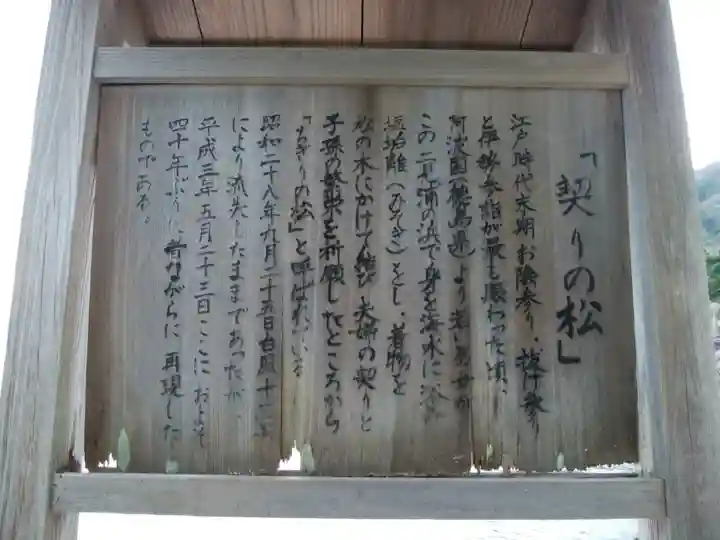 「契りの松」
江戸時代末期お陰参り、抜け参り
と伊勢参詣が最も賑わった頃、
阿波国(徳島県)より老若男女が
この二見浦の浜で身を海水に浴
垢離(ひこぎ)をし、着物を
松の木にかけて結び夫婦の契りと
子孫の繁栄を祈願したところから
「ちぎりの松」と呼ばれている
昭和二十八年九月二十五日台風十三号
により流失したままであったが、
平成三年五月二十三日ここにおよそ
四十年ぶりに昔ながらに再現した
ものである。